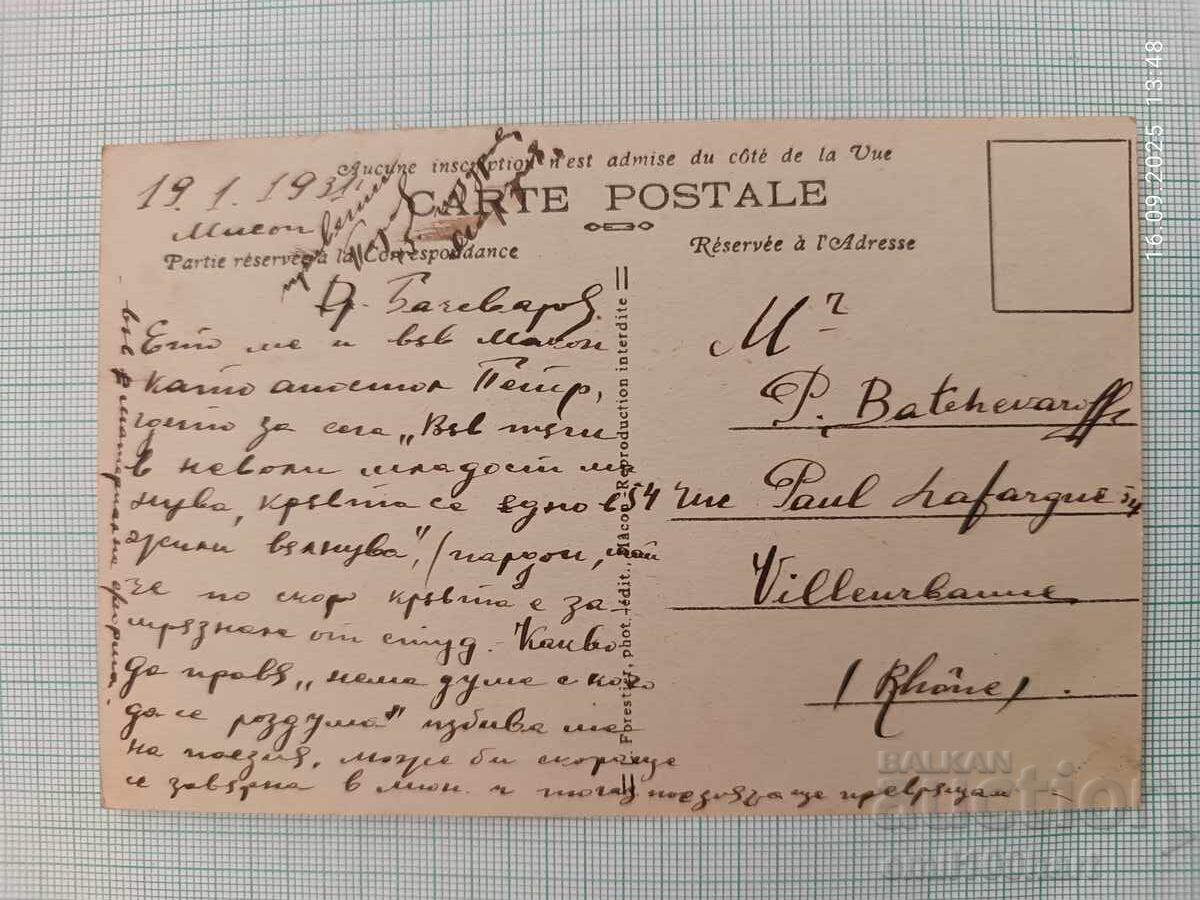 Aucune inscription n'est admise du côté de la Vue
CARTE POSTALE
Partie réservée à la Correspondance
Réservée à l'Adresse
19.1.1931
Макон
Др. Бачеваров.
Ето ме и във Макон
като апостол Петър,
гдето за сега „Във тъги
в неволи младост ми
нува, кръвта се едно в
жили вълнува", (пардон, май
че по скоро кръвта е за
мръзнала от студ. Какво
да правя „нема дума с кого
да се роздума" избива ме
на поезия, може би скоро ще
се завърна в Лион. и тогаз поезията ще превръщам
във материална форма.
Forestier, phot.-édit., Macon Reproduction interdite
Mr
P. Batchevaroff
54 rue Paul Lafargue 54
Villeurbanne
(Rhône).
16.09.2025 13:48
BALKAN
auction